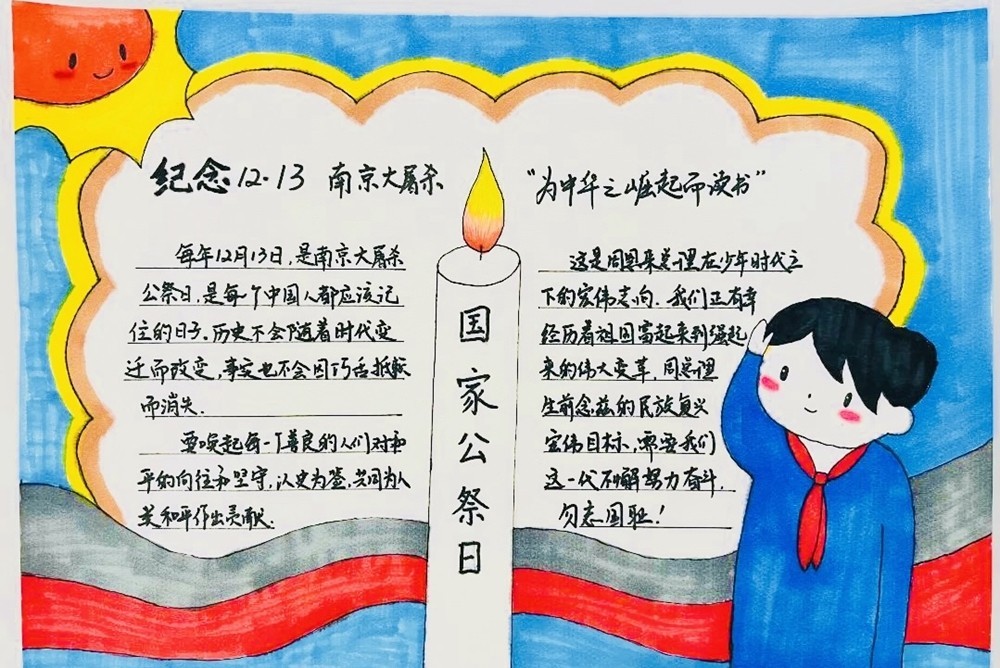 纪念12·13 南京大屠杀
每年12月13日,是南京大屠杀
公祭日,是每个中国人都应该记
住的日子.历史不会随着时代变
迁而改变,事实也不会因巧舌抵赖
而消失.
要唤起每一个善良的人们对和
平的向往和坚守,以史为鉴.共同为人
类和平作出贡献.
国家公祭日
“为中华之崛起而读书”
这是周恩来总理在少年时代立
下的宏伟志向.我们正有幸
经历着祖国富起来到强起
来的伟大变革,周总理
生前念兹的民族复兴
宏伟目标,需要我们
这一代不懈努力奋斗.
勿忘国耻!